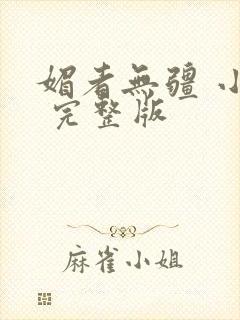 媚者無疆 小
完整版
麻雀小姐